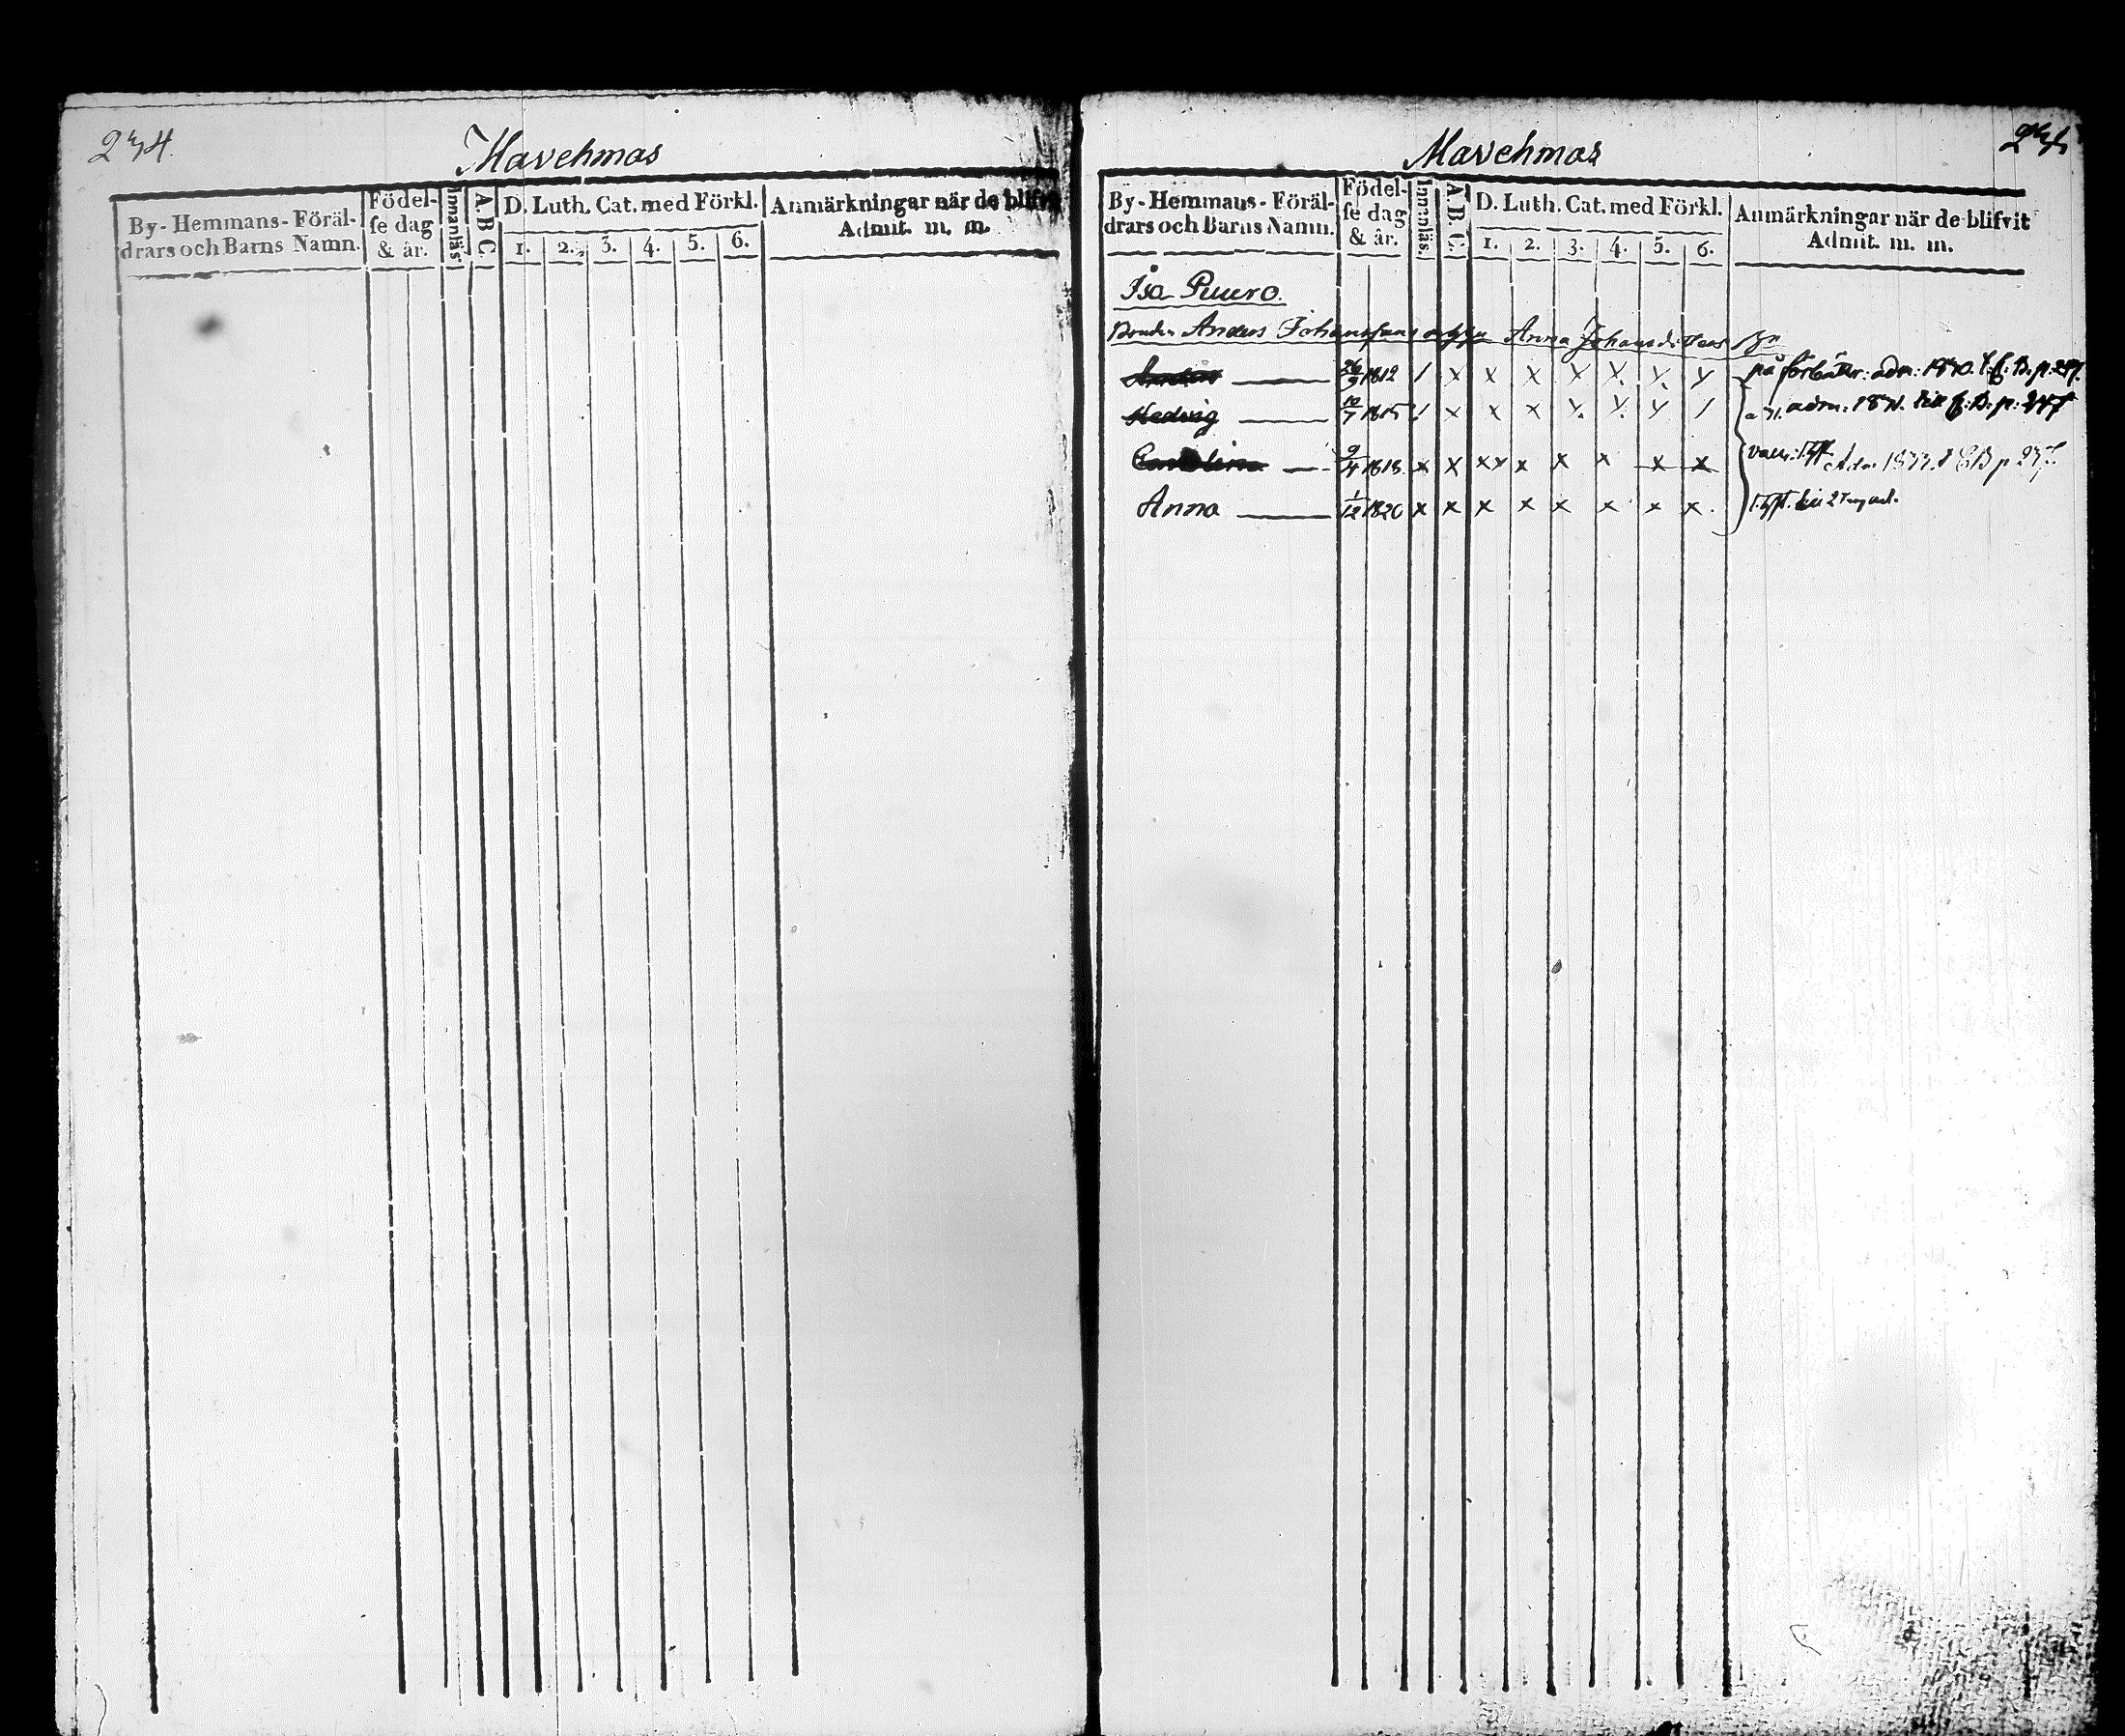 234.
Mavehmas
By- Hemmans- Föräl-
drars och Barns Namn.
Födel-
se dag
& år.
Innanläs.
A B C
D. Luth. Cat. med Förkl.
1. 2. 3. 4. 5. 6.
Anmärkningar när de blifvit
Admit. m. m.
Mavehmas
By- Hemmans- Föräl-
drars och Barns Namn.
Födel-
se dag
& år.
Innanläs.
A. B. C.
D. Luth. Cat. med Förkl.
1. 2. 3. 4. 5. 6.
Anmärkningar när de blifvit
Admit. m. m.
Iso Puuro.
Bonden Anders Johansson Anna Johansdotters
Anders 26/9 1812 / x x x x x x x på förbättr: adm: 1830.
Hedvig 10/7 1815 / x x x x x x / adm:
9/4 1818 x x x x x x x x x Adm 1833
Anna 1/12 1820 x x x x x x x x